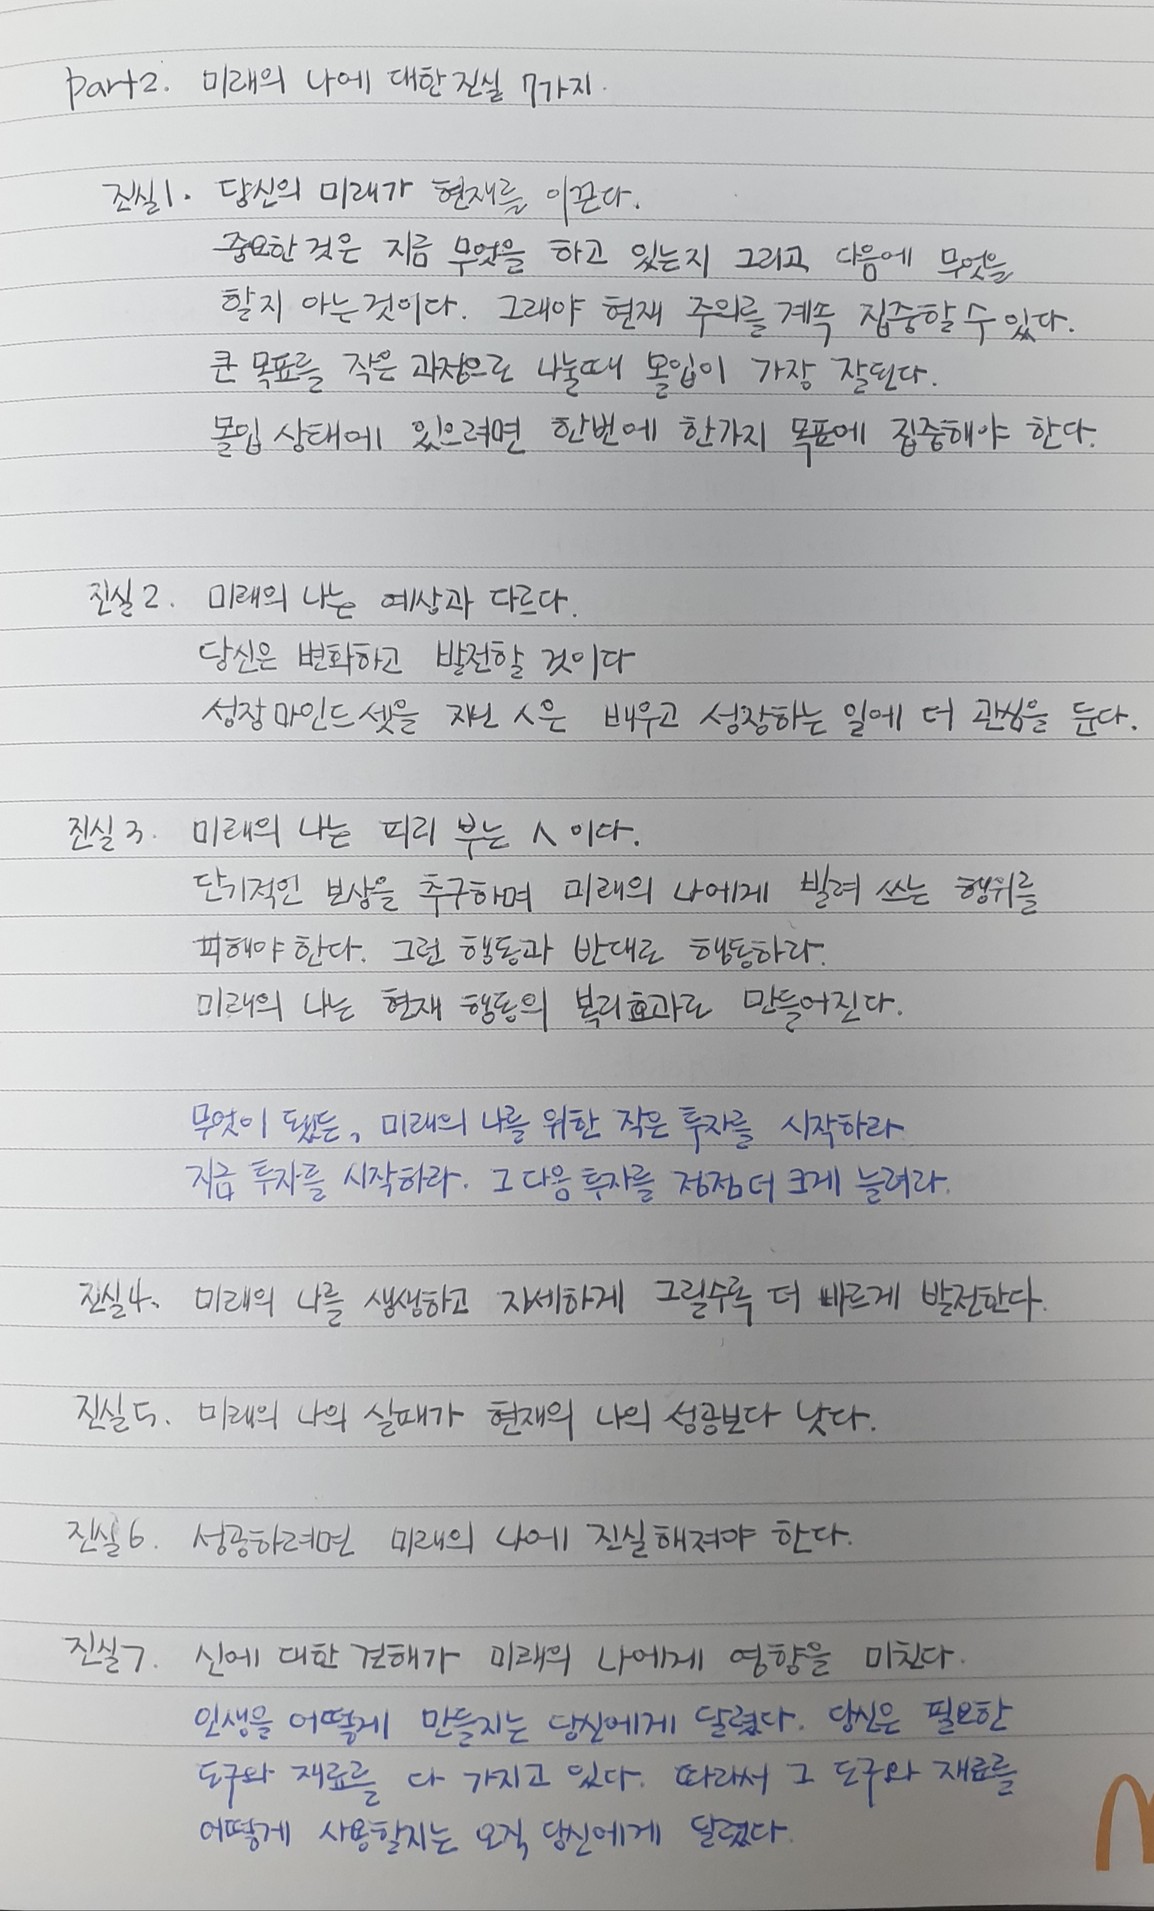 part2. 미래의 나에 대한 진실 7가지.
진실1. 당신의 미래가 현재를 이끈다.
중요한 것은 지금 무엇을 하고 있는지 그리고 다음에 무엇을
할지 아는 것이다. 그래야 현재 주의를 계속 집중할 수 있다.
큰 목표를 작은 과정으로 나눌때 몰입이 가장 잘된다.
몰입 상태에 있으려면 한번에 한가지 목표에 집중해야 한다.
진실2. 미래의 나는 예상과 다르다.
당신은 변화하고 발전할 것이다
성장 마인드셋을 지닌 人은 배우고 성장하는 일에 더 관심을 둔다.
진실3. 미래의 나는 피리 부는 人이다.
단기적인 보상을 추구하며 미래의 나에게 빌려 쓰는 행위를
피해야 한다. 그런 행동과 반대로 행동하라.
미래의 나는 현재 행동의 복리효과로 만들어진다.
무엇이 됐든, 미래의 나를 위한 작은 투자를 시작하라
지금 투자를 시작하라. 그 다음 투자를 점점 더 크게 늘려라.
진실4. 미래의 나를 생생하고 자세하게 그릴수록 더 빠르게 발전한다.
진실5. 미래의 나의 실패가 현재의 나의 성공보다 낫다.
진실6. 성공하려면 미래의 나에 진실해져야 한다.
진실7. 신에 대한 견해가 미래의 나에게 영향을 미친다.
인생을 어떻게 만들지는 당신에게 달렸다. 당신은 필요한
도구와 재료를 다 가지고 있다. 따라서 그 도구와 재료를
어떻게 사용할지는 오직 당신에게 달렸다.